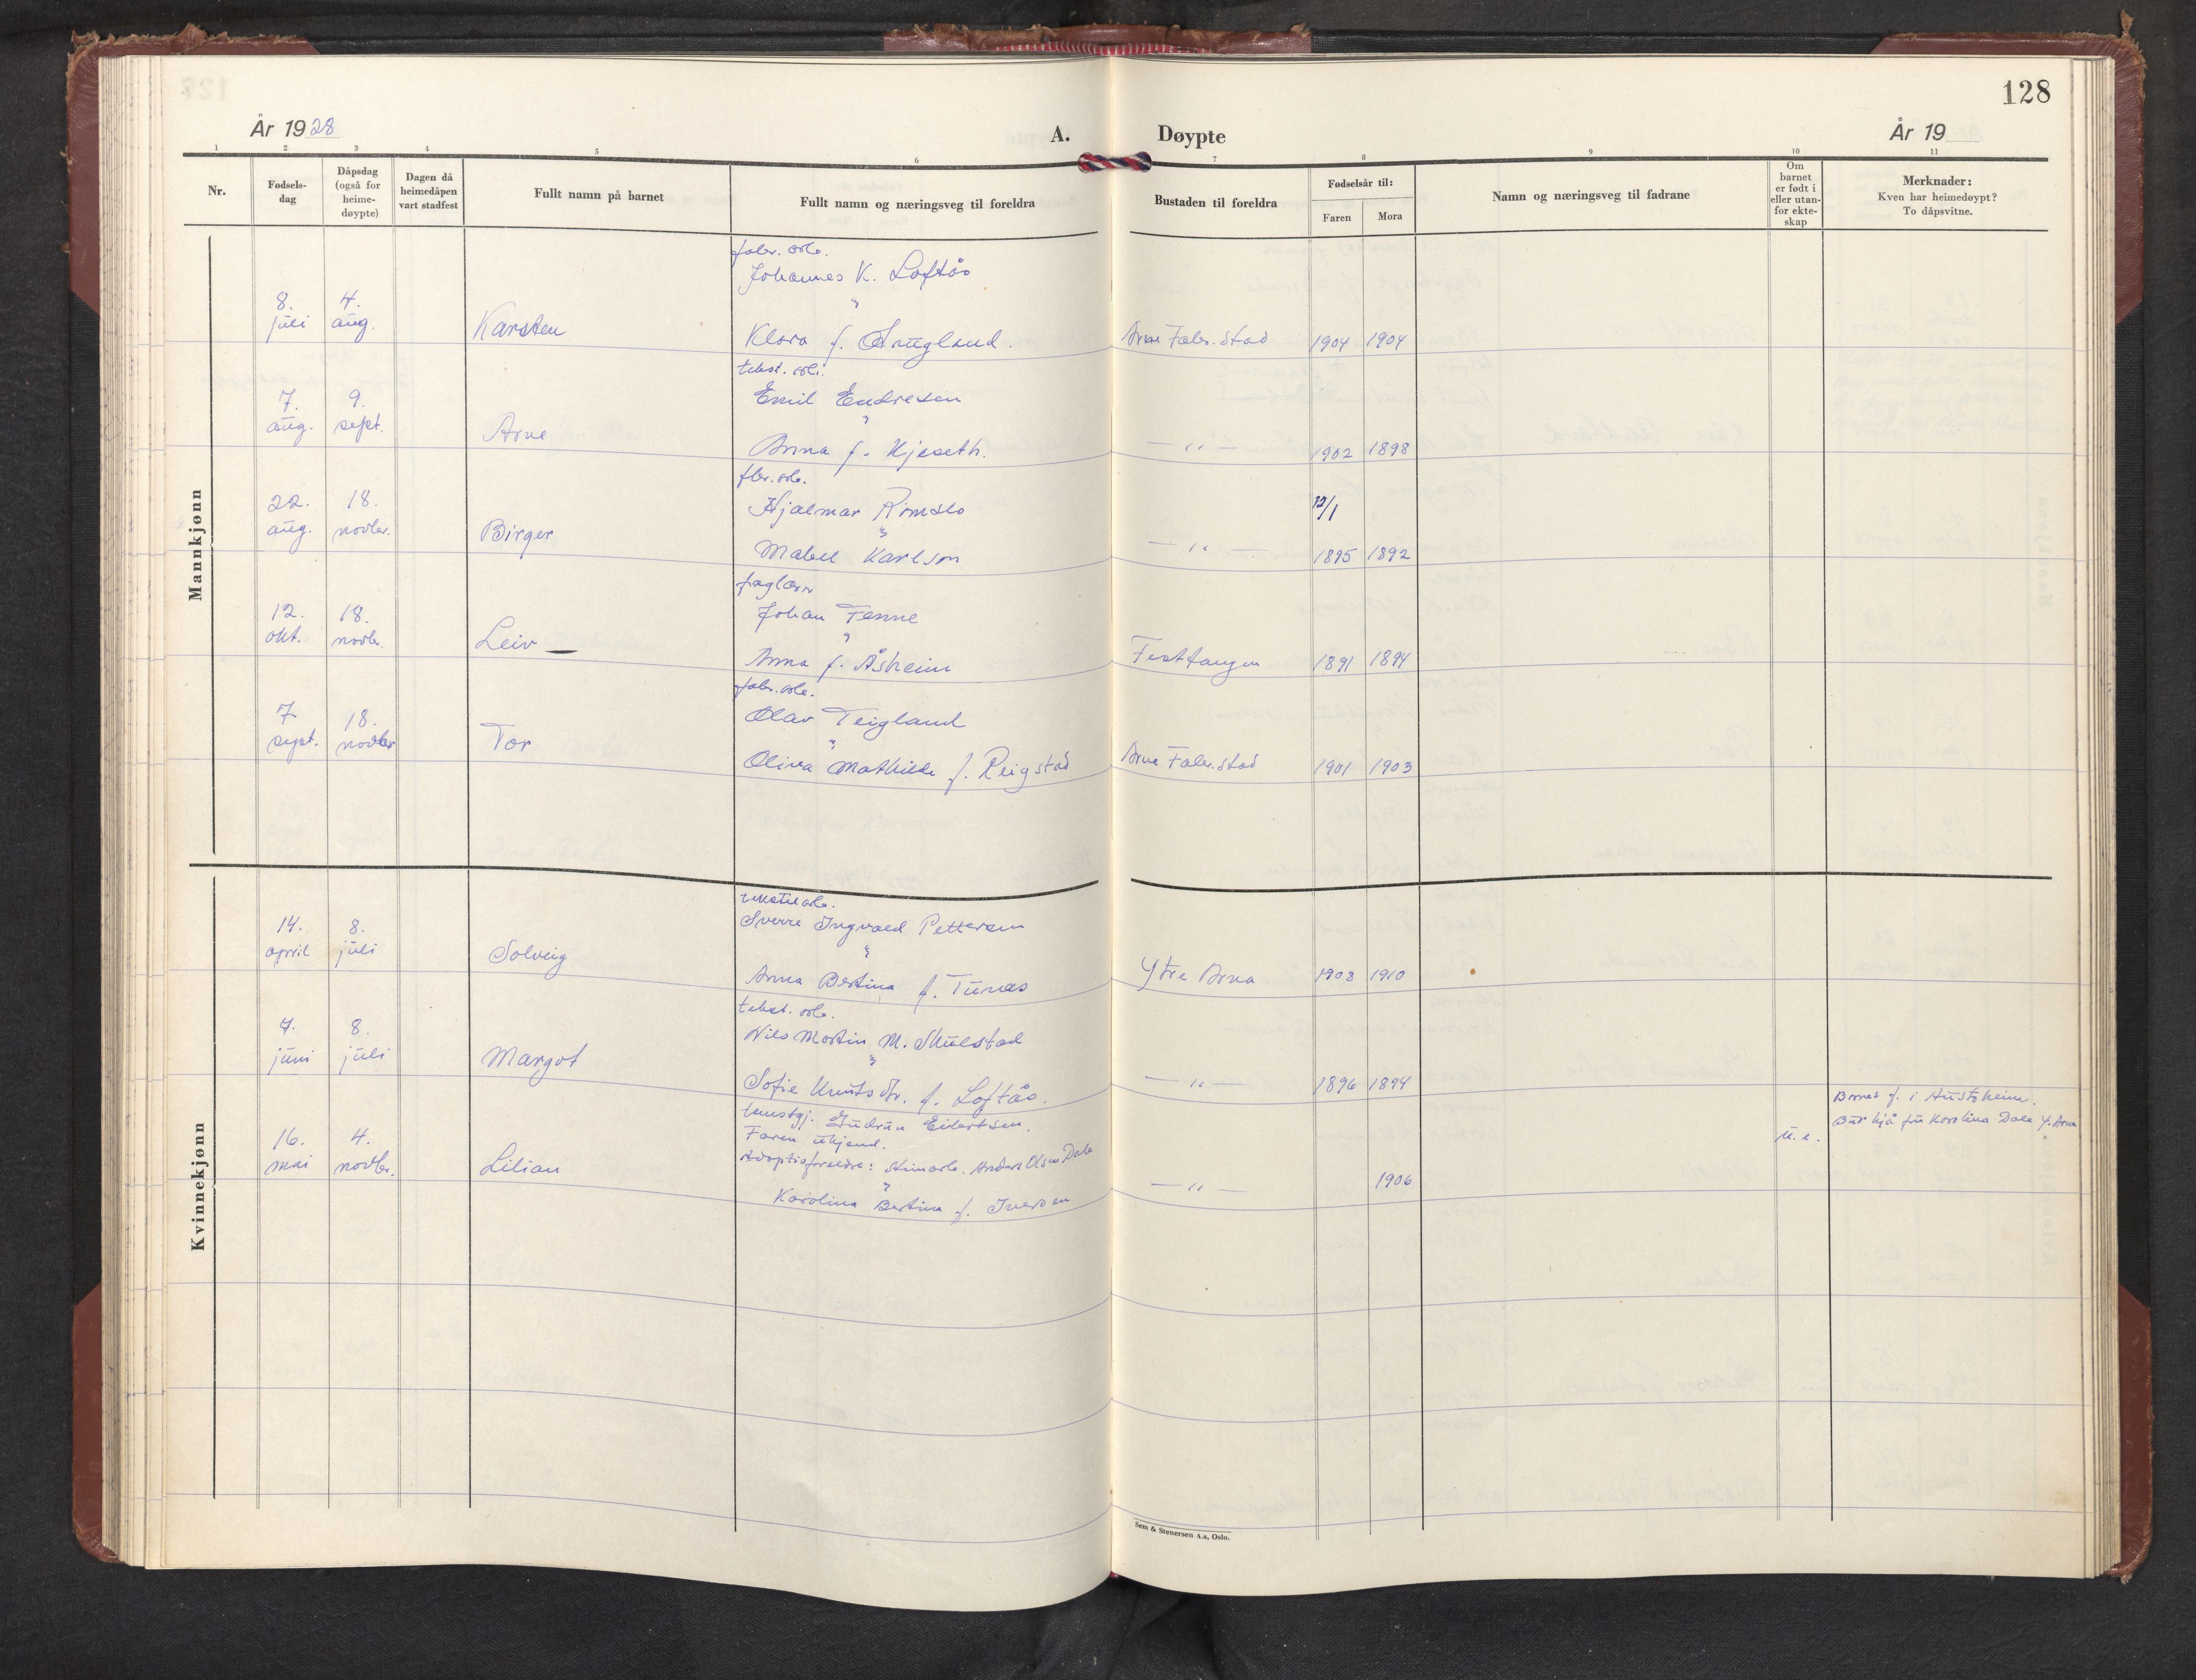 128
År 1928
A.
Døypte
År 19
1 2 3 4 5 6 7 8 9 10 11
Nr.
Fødsels-
dag
Dåpsdag
(også for
heime-
døypte)
Dagen då
heimedåpen
vart stadfest
Fullt namn på barnet
Fullt namn og næringsveg til foreldra
Bustaden til foreldra
Fødselsår til:
Faren Mora
Namn og næringsveg til fadrane
Om
barnet
er født i
eller utan-
for ekte-
skap
Merknader:
Kven har heimedøypt?
To dåpsvitne.
Mannkjønn
fabr. arb.
Johannes K. Loftås
"
8. juli 4. aug. Karsten Klara f. Arne Fabr. stad 1904 1904
tekst. arb.
Emil Endresen
"
7. aug. 9. sept. Arne Anna f. Kjeseth. — " — 1902 1898
fbr. arb.
Hjalmar Romslo
"
22. aug. 18. novbr. Birger Mabel Karlson — " — 1895 1892
faglærer
Johan Fenne
"
12. okt. 18. novbr. Leiv — Anna f. Åsheim Festtangen 1891 1894
fabr. arb.
Olav Teigland
"
7 sept. 18. novbr Tor Oliva Mathilde f. Reigstad Arne Fabr. stad 1901 1903
Kvinnekjønn
tekstilarb.
Sverre Ingvald Pettersen
"
14. april 8. juli Solveig Anna Bertina f. Tunæs Ytre Arna 1908 1910
tekst. arb.
Nils Martin M. Skulstad
"
7. juni 8. juli Margot Sofie Knutsdtr. f. Loftås. — " — 1896 1894
tenestgj. Gudrun Eilertsen.
Faren ukjend.
Adoptivforeldre: steinarb. Anders Olsen Dale
"
16. mai 4. novbr. Lilian Karolina Bertina f. Iversen — " 1906 u.e.
Barnet f. i Austrheim.
Bur hjå fru Karolina Dale Y. Arna
Sem & Stenersen A.s, Oslo.